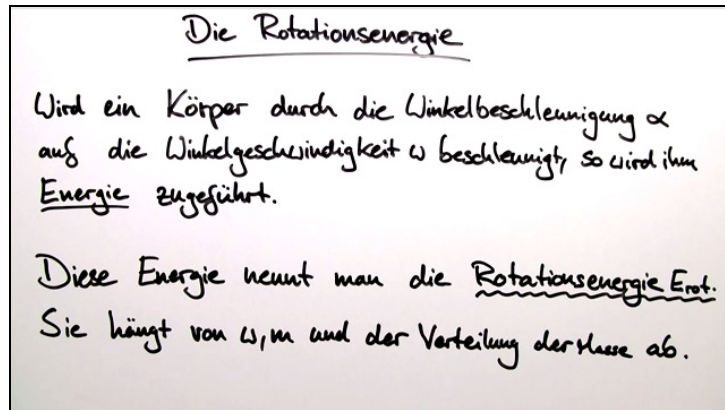 Die Rotationsenergie
Wird ein Körper durch die Winkelbeschleunigung α
auf die Winkelgeschwindigkeit ω beschleunigt, so wird ihm
Energie zugeführt.
Diese Energie nennt man die Rotationsenergie Erot.
Sie hängt von ω, m und der Verteilung der Masse ab.